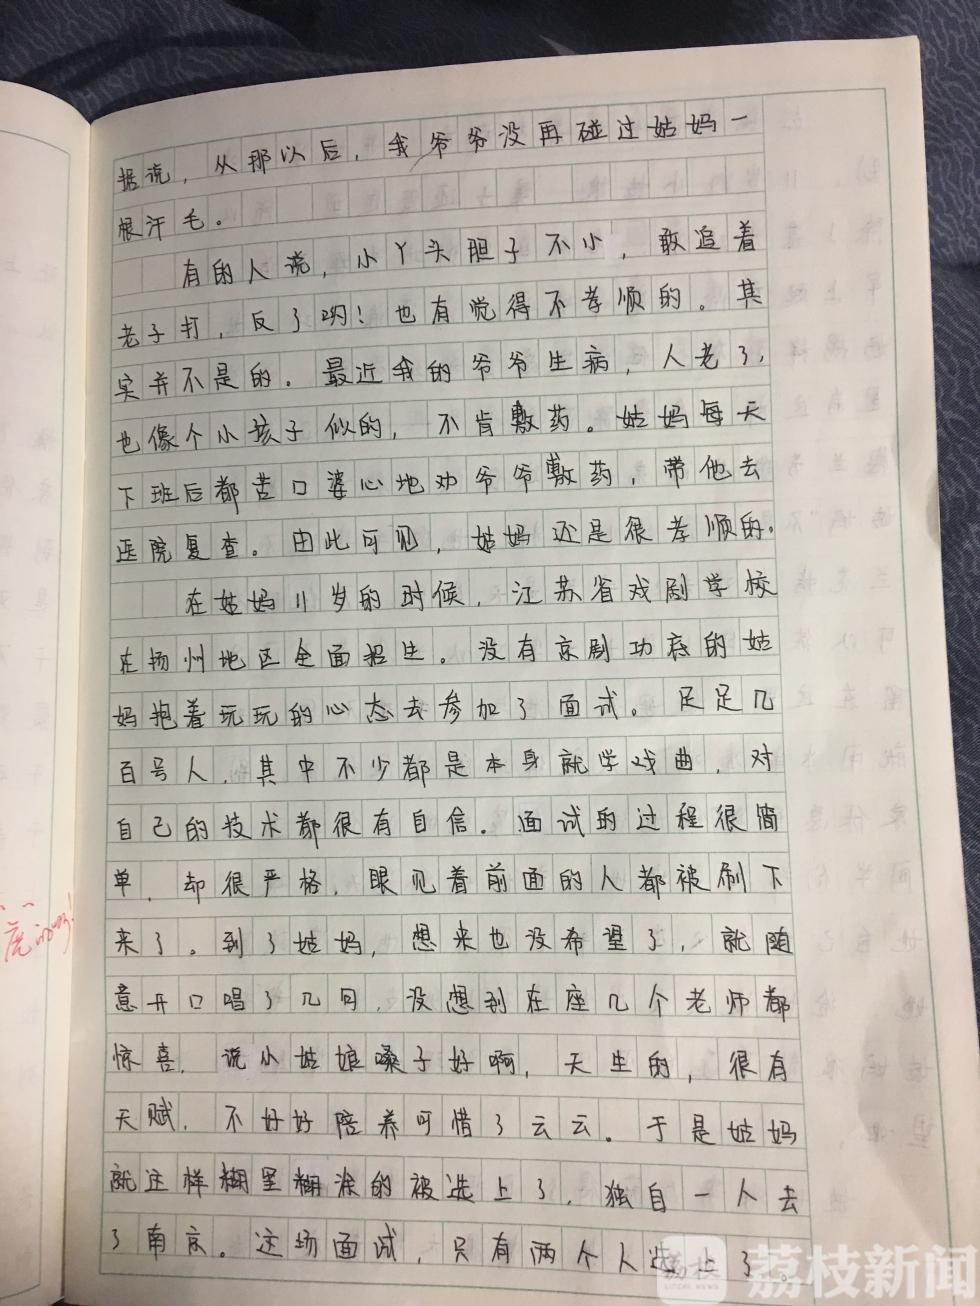 据说，从那以后，我爷爷没再碰过姑妈一
根汗毛。
有的人说，小丫头胆子不小，敢追着
老子打，反了哟！也有觉得不孝顺的。其
实并不是的。最近我的爷爷生病，人老了，
也像个小孩子似的，不肯敷药。姑妈每天
下班后都苦口婆心地劝爷爷敷药，带他去
医院复查。由此可见，姑妈还是很孝顺的。
在姑妈11岁的时候，江苏省戏剧学校
在扬州地区全面招生。没有京剧功底的姑
妈抱着玩玩的心态去参加了面试。足足几
百号人，其中不少都是本身就学戏曲，对
自己的技术都很有自信。面试的过程很简
单，却很严格，眼见着前面的人都被刷下
来了。到了姑妈，想来也没希望了，就随
意开口唱了几句，没想到在座几个老师都
惊喜，说小姑娘嗓子好啊，天生的，很有
天赋，不好好陪养可惜了云云。于是姑妈
就这样糊里糊涂的被选上了，独自一人去
了南京。这场面试，只有两个人选上了。
荔枝 荔枝新闻